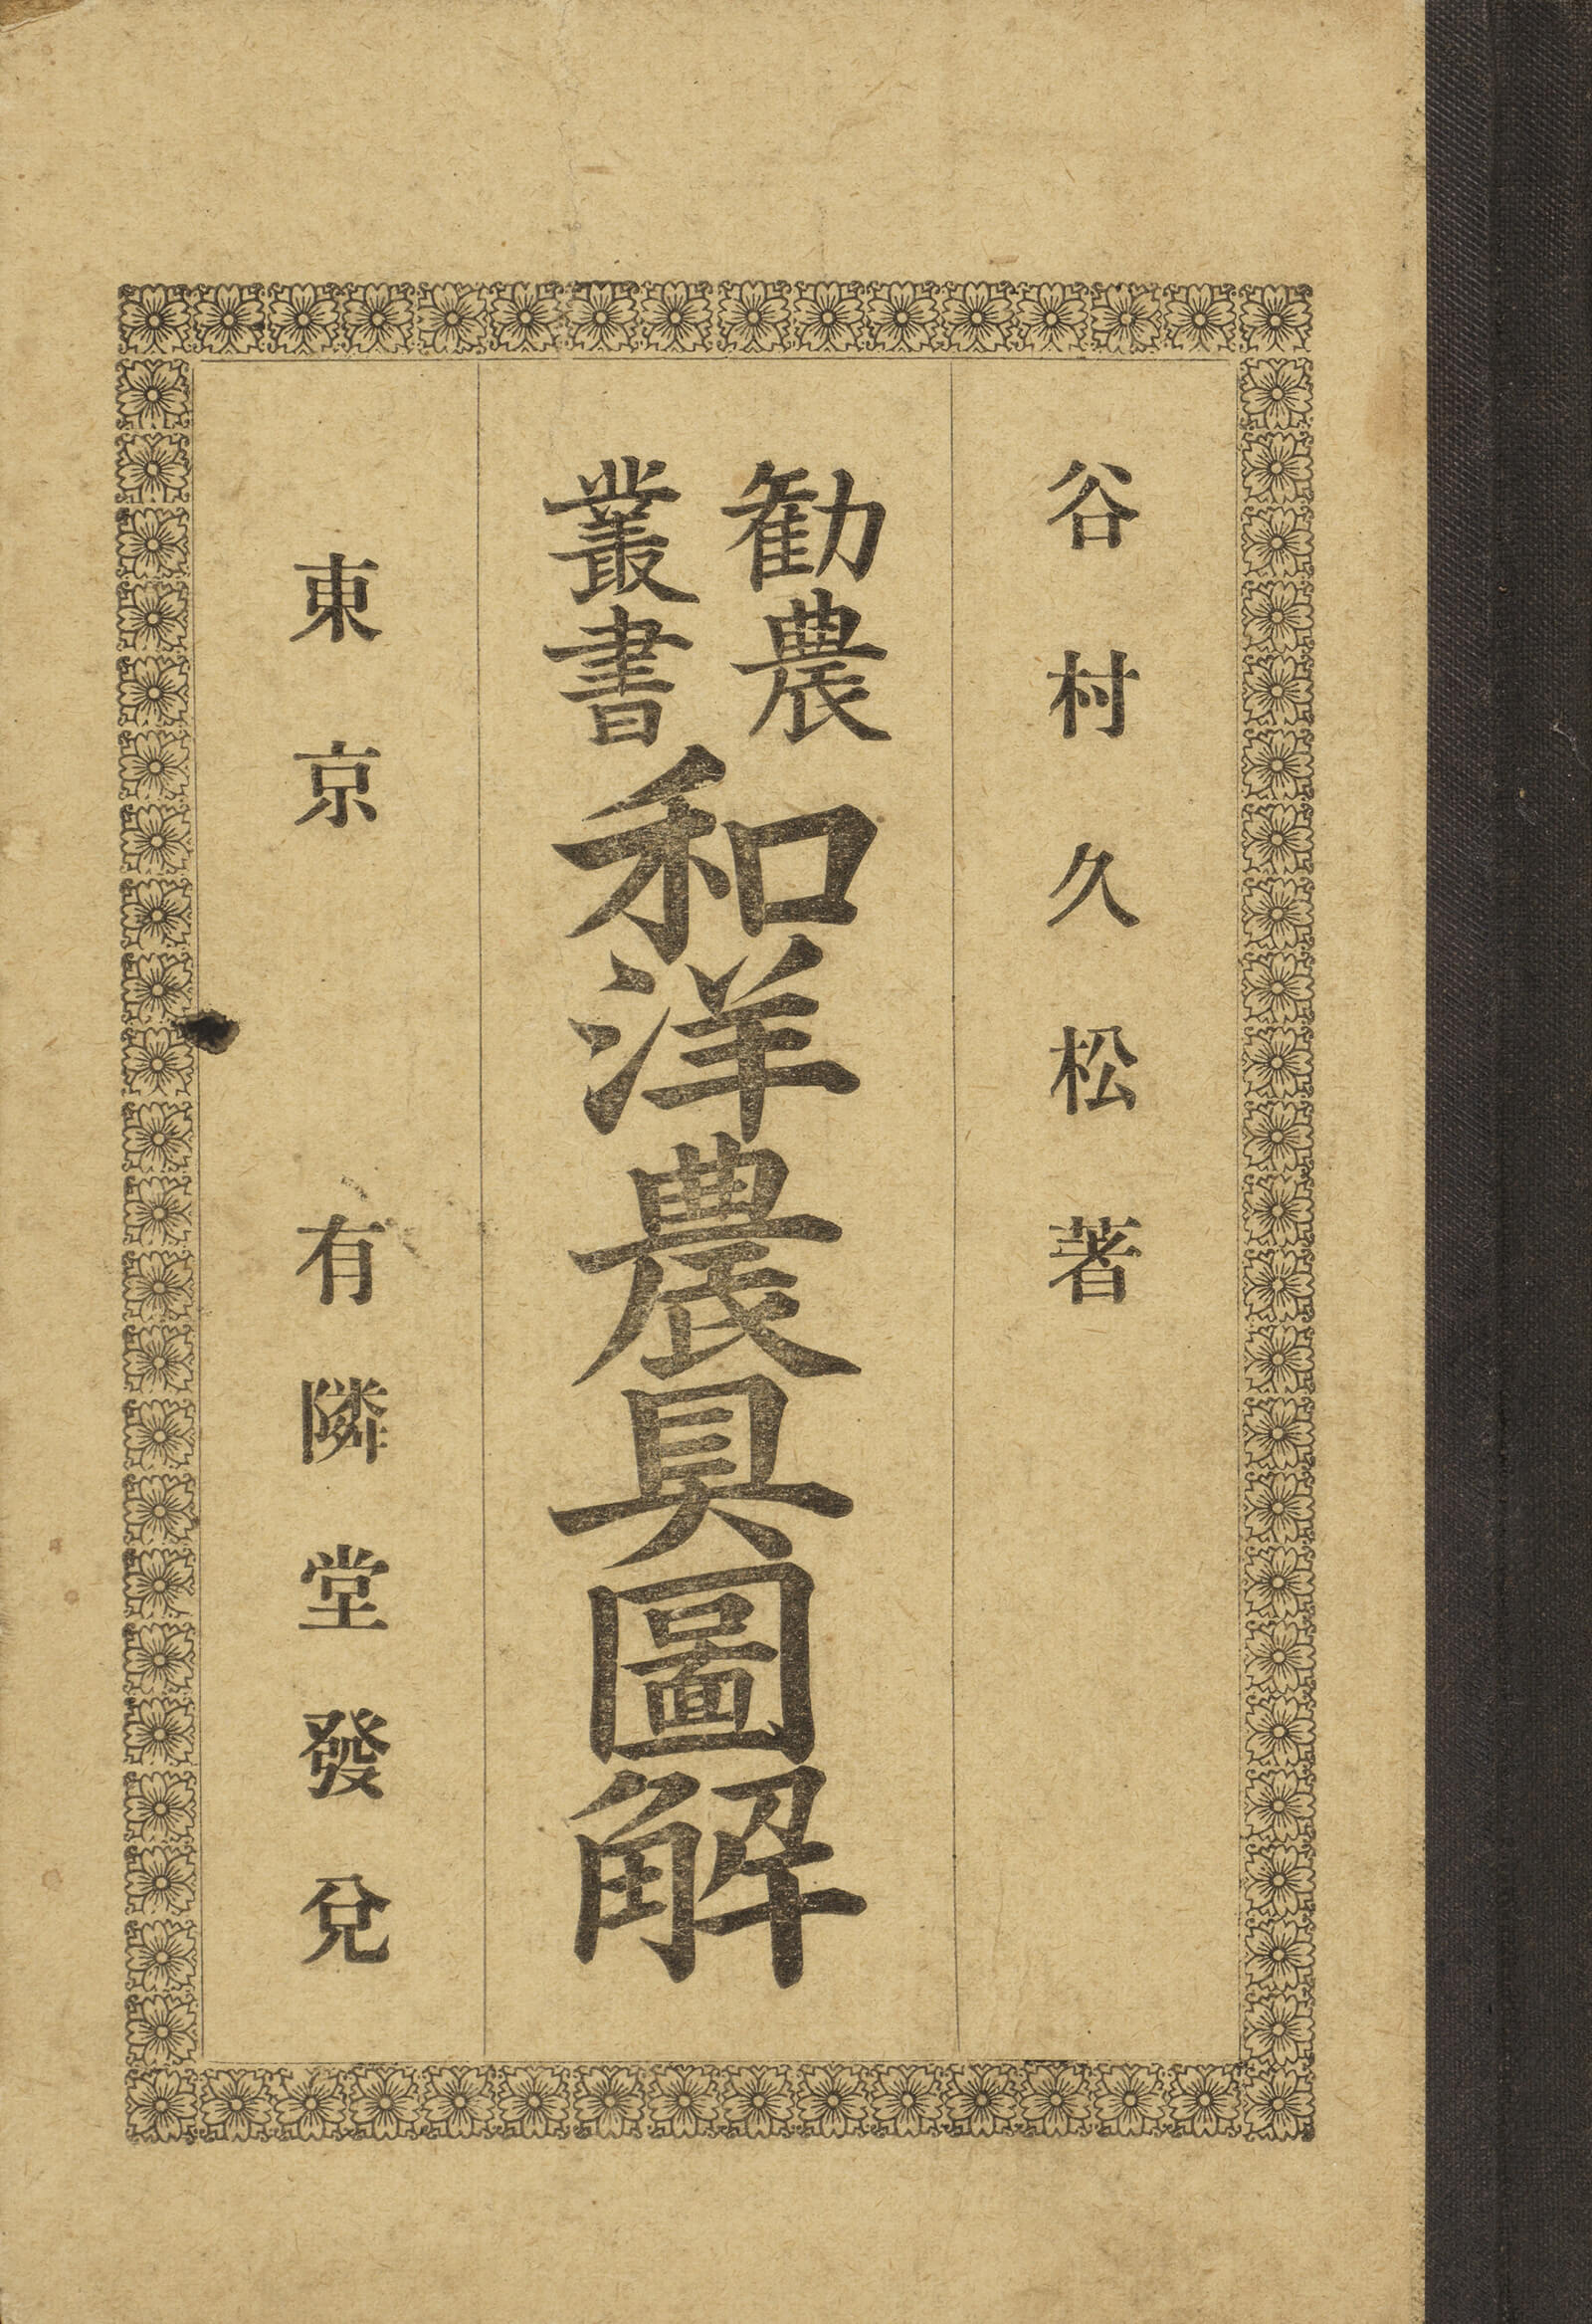 谷村久松著
勸農叢書
和洋農具圖解
東京 有隣堂發兌